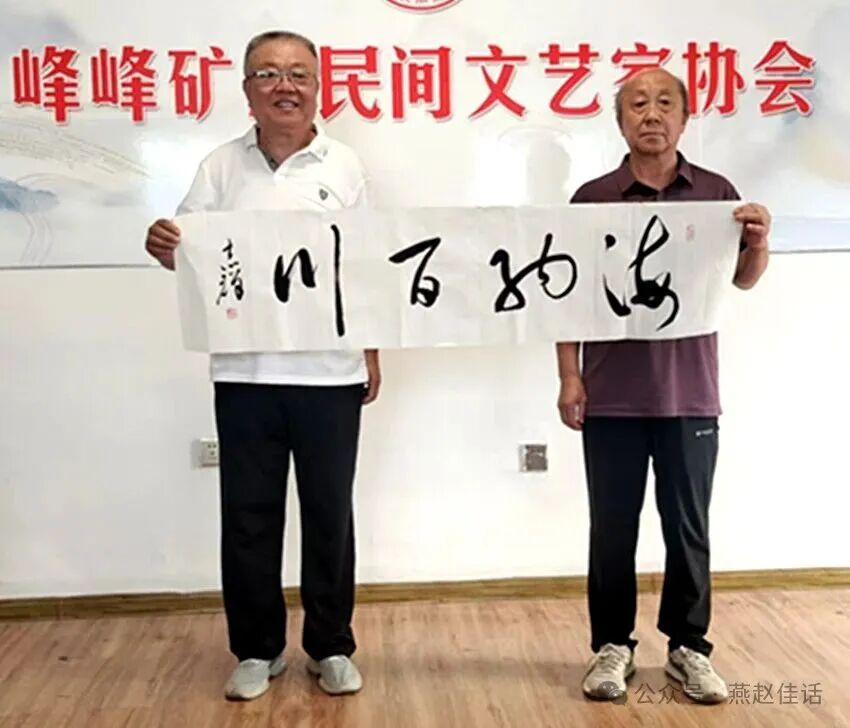 峰峰矿 民间文艺家协会
海纳百川
公众号 · 燕赵佳话